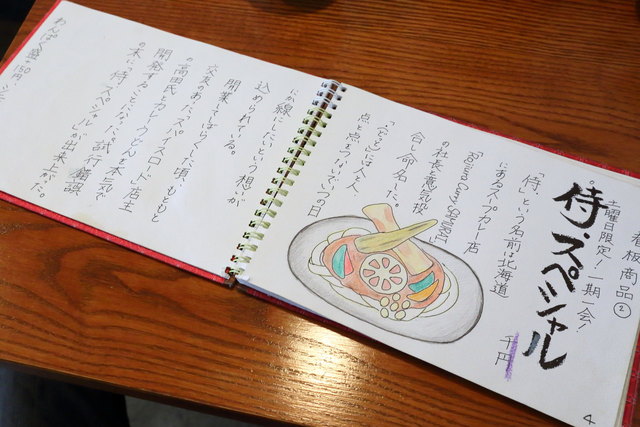 看板商品②
土曜日限定!一期一会!
侍スペシャル
千円
「侍.」という名前は北海道
にあるスープカレー店
「Rojiura Curry SAMURAI.」
の社長と意気投
合し命名した。
「.(どっと)」には人と人、
点と点をつないでいつの日
にか線にしたいという想いが
込められている。
開業してしばらくした頃、もともと
交友のあった「スパイスロード」店主
の高田氏とカレーうどんを本気で
開発することになった。試行錯誤
の末に「侍.スペシャル」が出来上がった。
わんぱく盛+150円
4